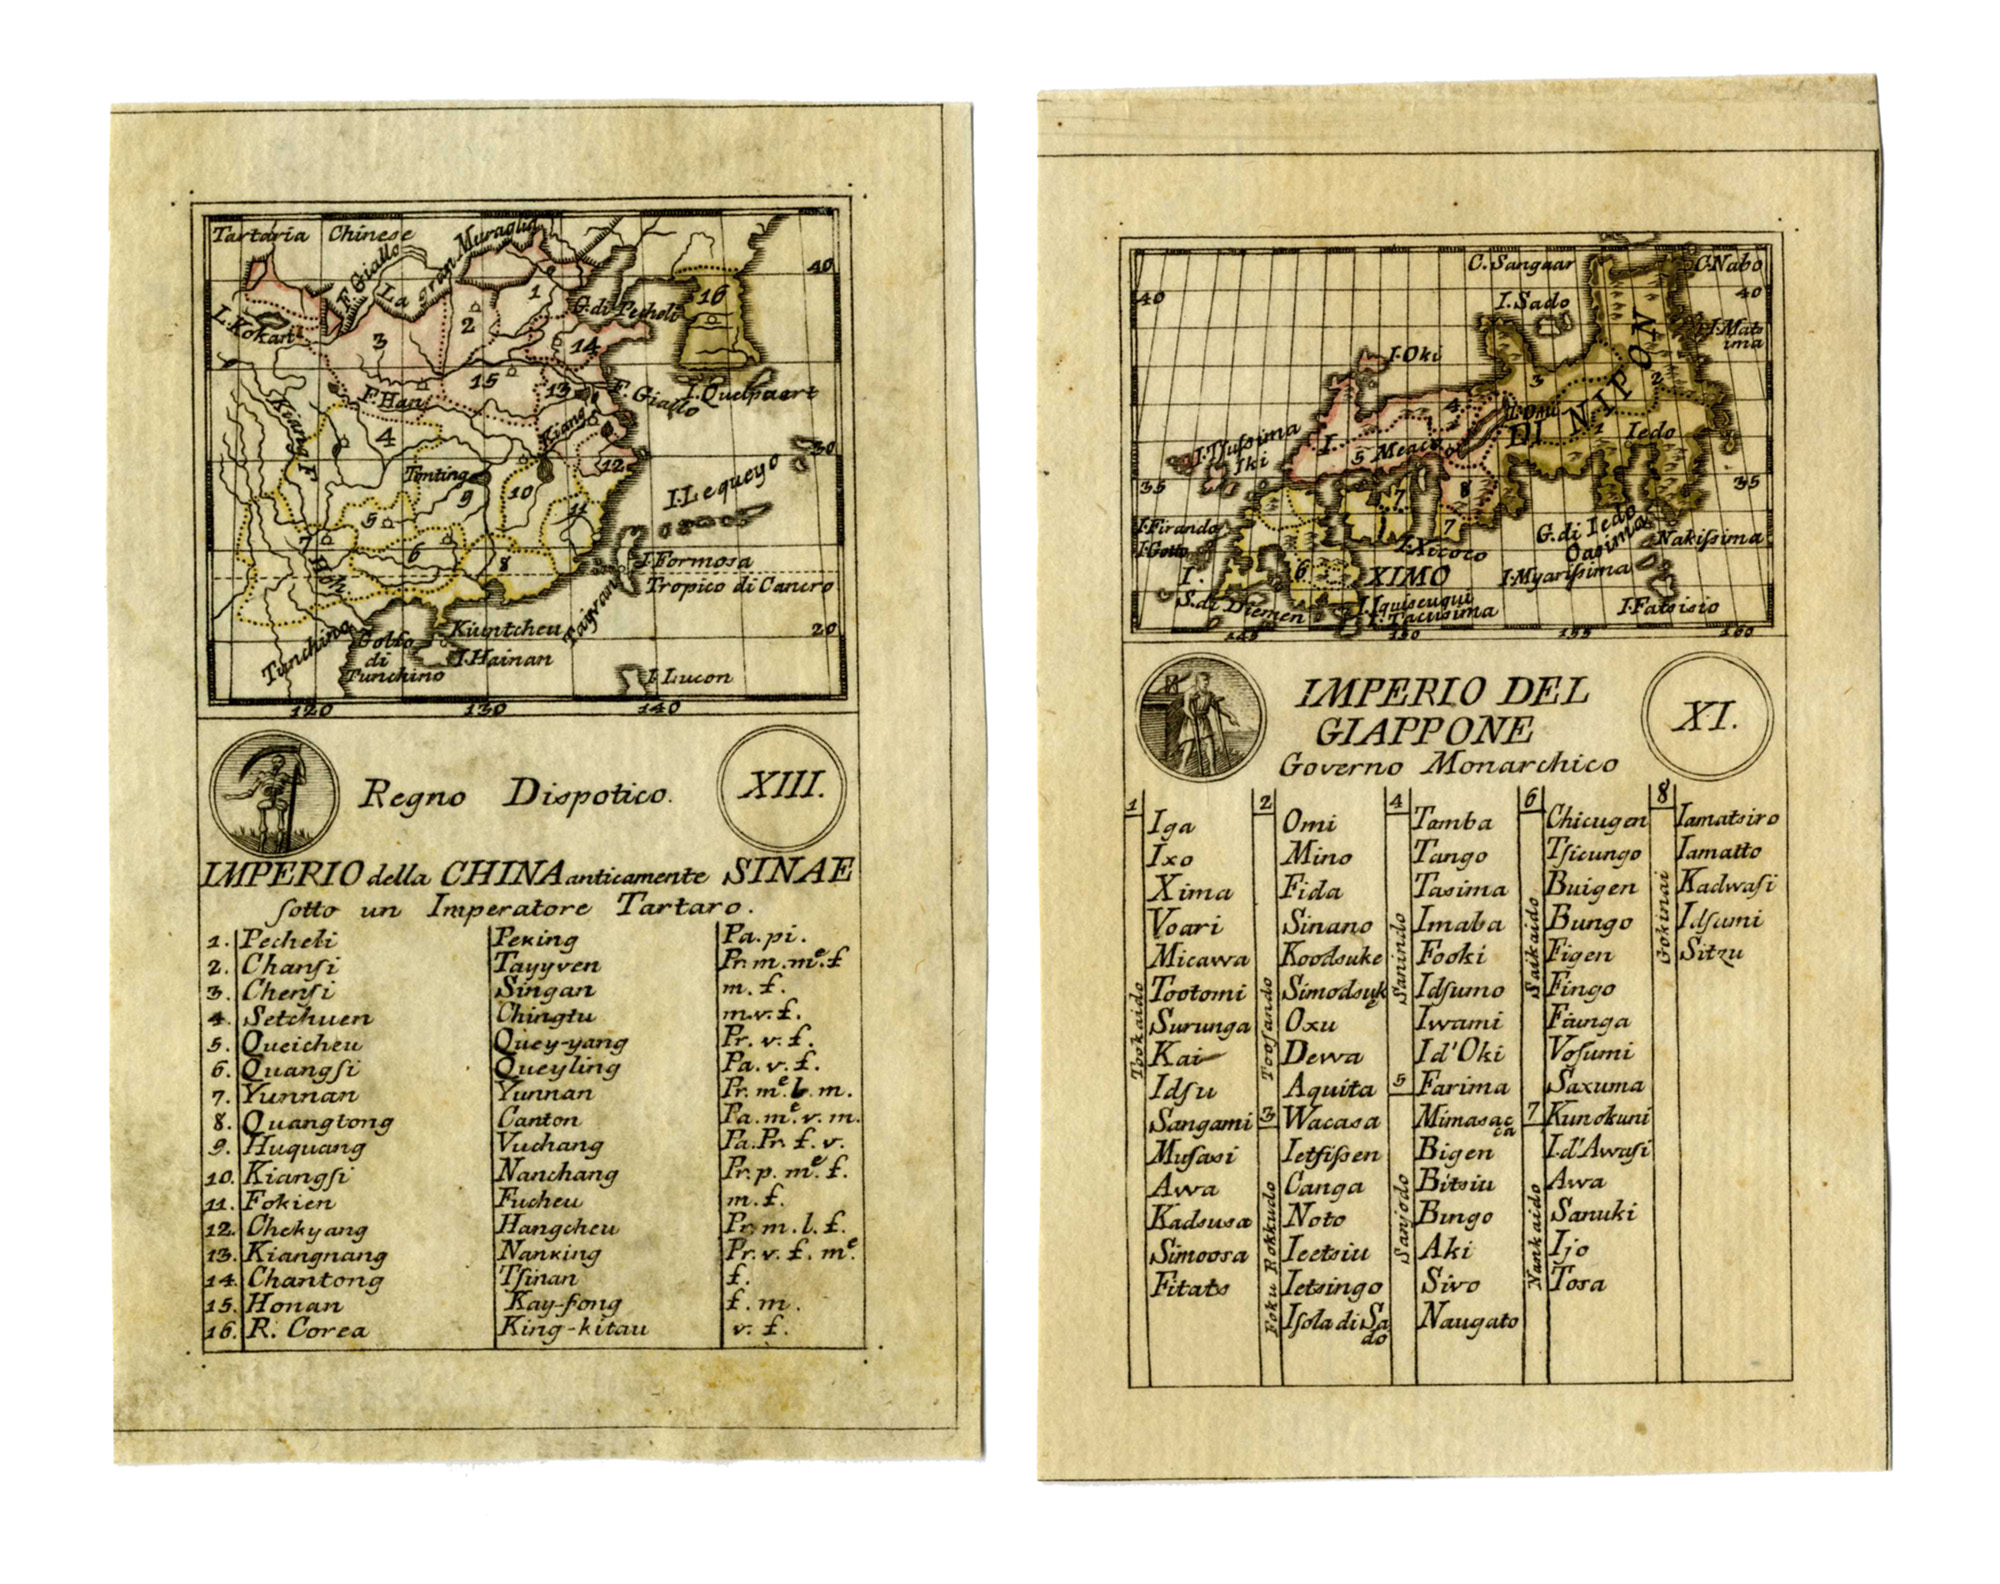 Tartaria Chinese
La gran Muraglia
F. Giallo
40
1
16
G. di Pecheli
L. Kokari
2
3
14
15
13
F. Giallo
I. Quelpaert
F. Han
Kiang F.
4
Kiang
30
Tonting
12
9
10
I. Lequeyo
5
11
7
6
8
I. Formosa
Tropico di Cancro
Tunching
Golfo
di
Tunchino
Kuntcheu
I. Hainan
20
I. Lucon
120 130 140
Regno Dispotico.
XIII.
IMPERIO della CHINA anticamente SINAE
sotto un Imperatore Tartaro.
1. Pecheli Peking Pa. pi.
2. Chanſi Tayyven Pr. m. mͤ. f
3. Chenſi Singan m. f.
4. Setchuen Chingtu m. v. f.
5. Queicheu Quey-yang Pr. v. f.
6. Quangſi Queyling Pa. v. f.
7. Yunnan Yunnan Pr. mͤ. b. m.
8. Quangtong Canton Pa. mͤ. v. m.
9. Huquang Vuchang Pa. Pr. f. v.
10. Kiangſi Nanchang Pr. p. mͤ. f.
11. Fokien Fucheu m. f.
12. Chekyang Hangcheu Pr. m. l. f.
13. Kiangnang Nanking Pr. v. f. mͤ.
14. Chantong Tſinan f.
15. Honan Kay-fong f. m.
16. R. Corea King-kitau v. f.
C. Sangaar
C. Nabo
40
40
I. Sado
I. Mats
ima
I. Oki
DI NIPON
3
2
4
1
Iedo
I. Tſuſsima
Iki
5 Meaco
35
7
8
35
I. Firando
I. Gotto
7
G. di Iedo
Oosima
Nakiſsima
I. Xicoco
6
XIMO
I. Myariſsima
S. di Diemen
I. Tacuxima
I. Fatsisio
145 150 155 160
IMPERIO DEL
GIAPPONE
Governo Monarchico
XI.
1
Tookaido
Iga
Ixo
Xima
Voari
Micawa
Tootomi
Surunga
Kai
Idſu
Sangami
Muſasi
Awa
Kadsusa
Simoosa
Fitats
2
Tooſando
Omi
Mino
Fida
Sinano
Koodsuke
Simodsuke
Oxu
Dewa
Aquita
3
Foku Rokkudo
Wacasa
Ietſiſsen
Canga
Noto
Ieetsiu
Ietsingo
Iſola di Sa
do
4
Sanindo
Tamba
Tango
Tasima
Imaba
Fooki
Idſumo
Iwami
Id'Oki
5
Sanjodo
Farima
Mimasac
ca
Bigen
Bitsiu
Bingo
Aki
Sivo
Naugato
6
Saikaido
Chicugen
Tſicungo
Buigen
Bungo
Figen
Fingo
Fiunga
Voſumi
Saxuma
7
Nankaido
Kunokuni
I. d'Awaſi
Awa
Sanuki
Ijo
Tosa
8
Gokinai
Iamatsiro
Iamatto
Kadwaſi
Idſumi
Sitzu